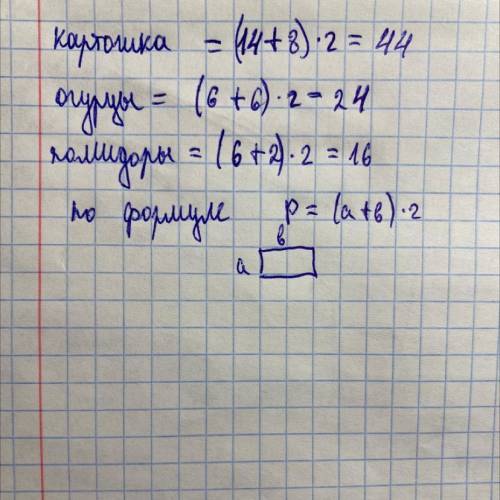 картошка = (14+8)·2 = 44
огурцы = (6+6)·2 = 24
помидоры = (6+2)·2 = 16
по формуле P = (a+в)·2
в
a